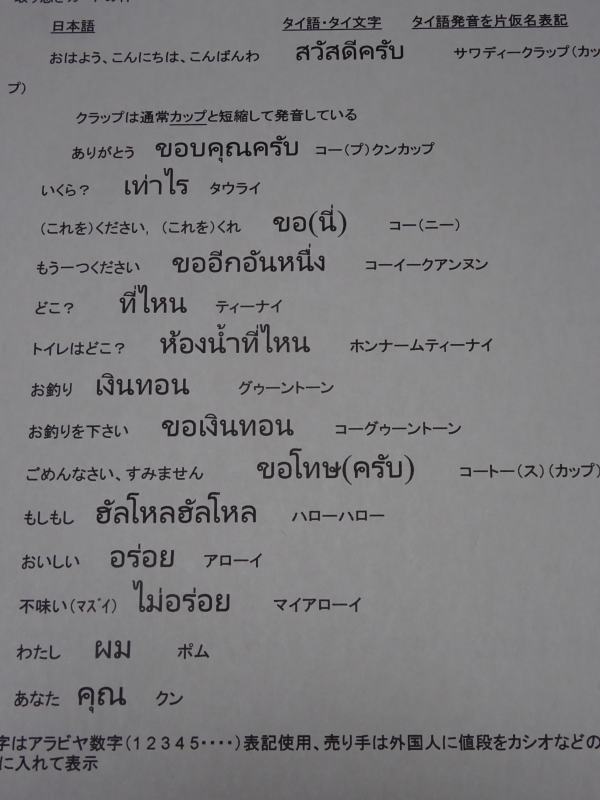 日本語 タイ語・タイ文字 タイ語発音を片仮名表記
おはよう、こんにちは、こんばんわ สวัสดีครับ サワディークラップ(カッ
プ)
クラップは通常カップと短縮して発音している
ありがとう ขอบคุณครับ コー(プ)クンカップ
いくら? เท่าไร タウライ
(これを)ください, (これを)くれ ขอ(นี่) コー(ニー)
もう一つください ขออีกอันหนึ่ง コーイークアンヌン
どこ? ที่ไหน ティーナイ
トイレはどこ? ห้องน้ำที่ไหน ホンナームティーナイ
お釣り เงินทอน グゥーントーン
お釣りを下さい ขอเงินทอน コーグゥーントーン
ごめんなさい、すみません ขอโทษ(ครับ) コートー(ス)(カップ)
もしもし ฮัลโหลฮัลโหล ハローハロー
おいしい อร่อย アローイ
不味い(ﾏｽﾞｲ) ไม่อร่อย マイアローイ
わたし ผม ポム
あなた คุณ クン
字はアラビヤ数字(12345・・・・)表記使用、売り手は外国人に値段をカシオなどの
に入れて表示